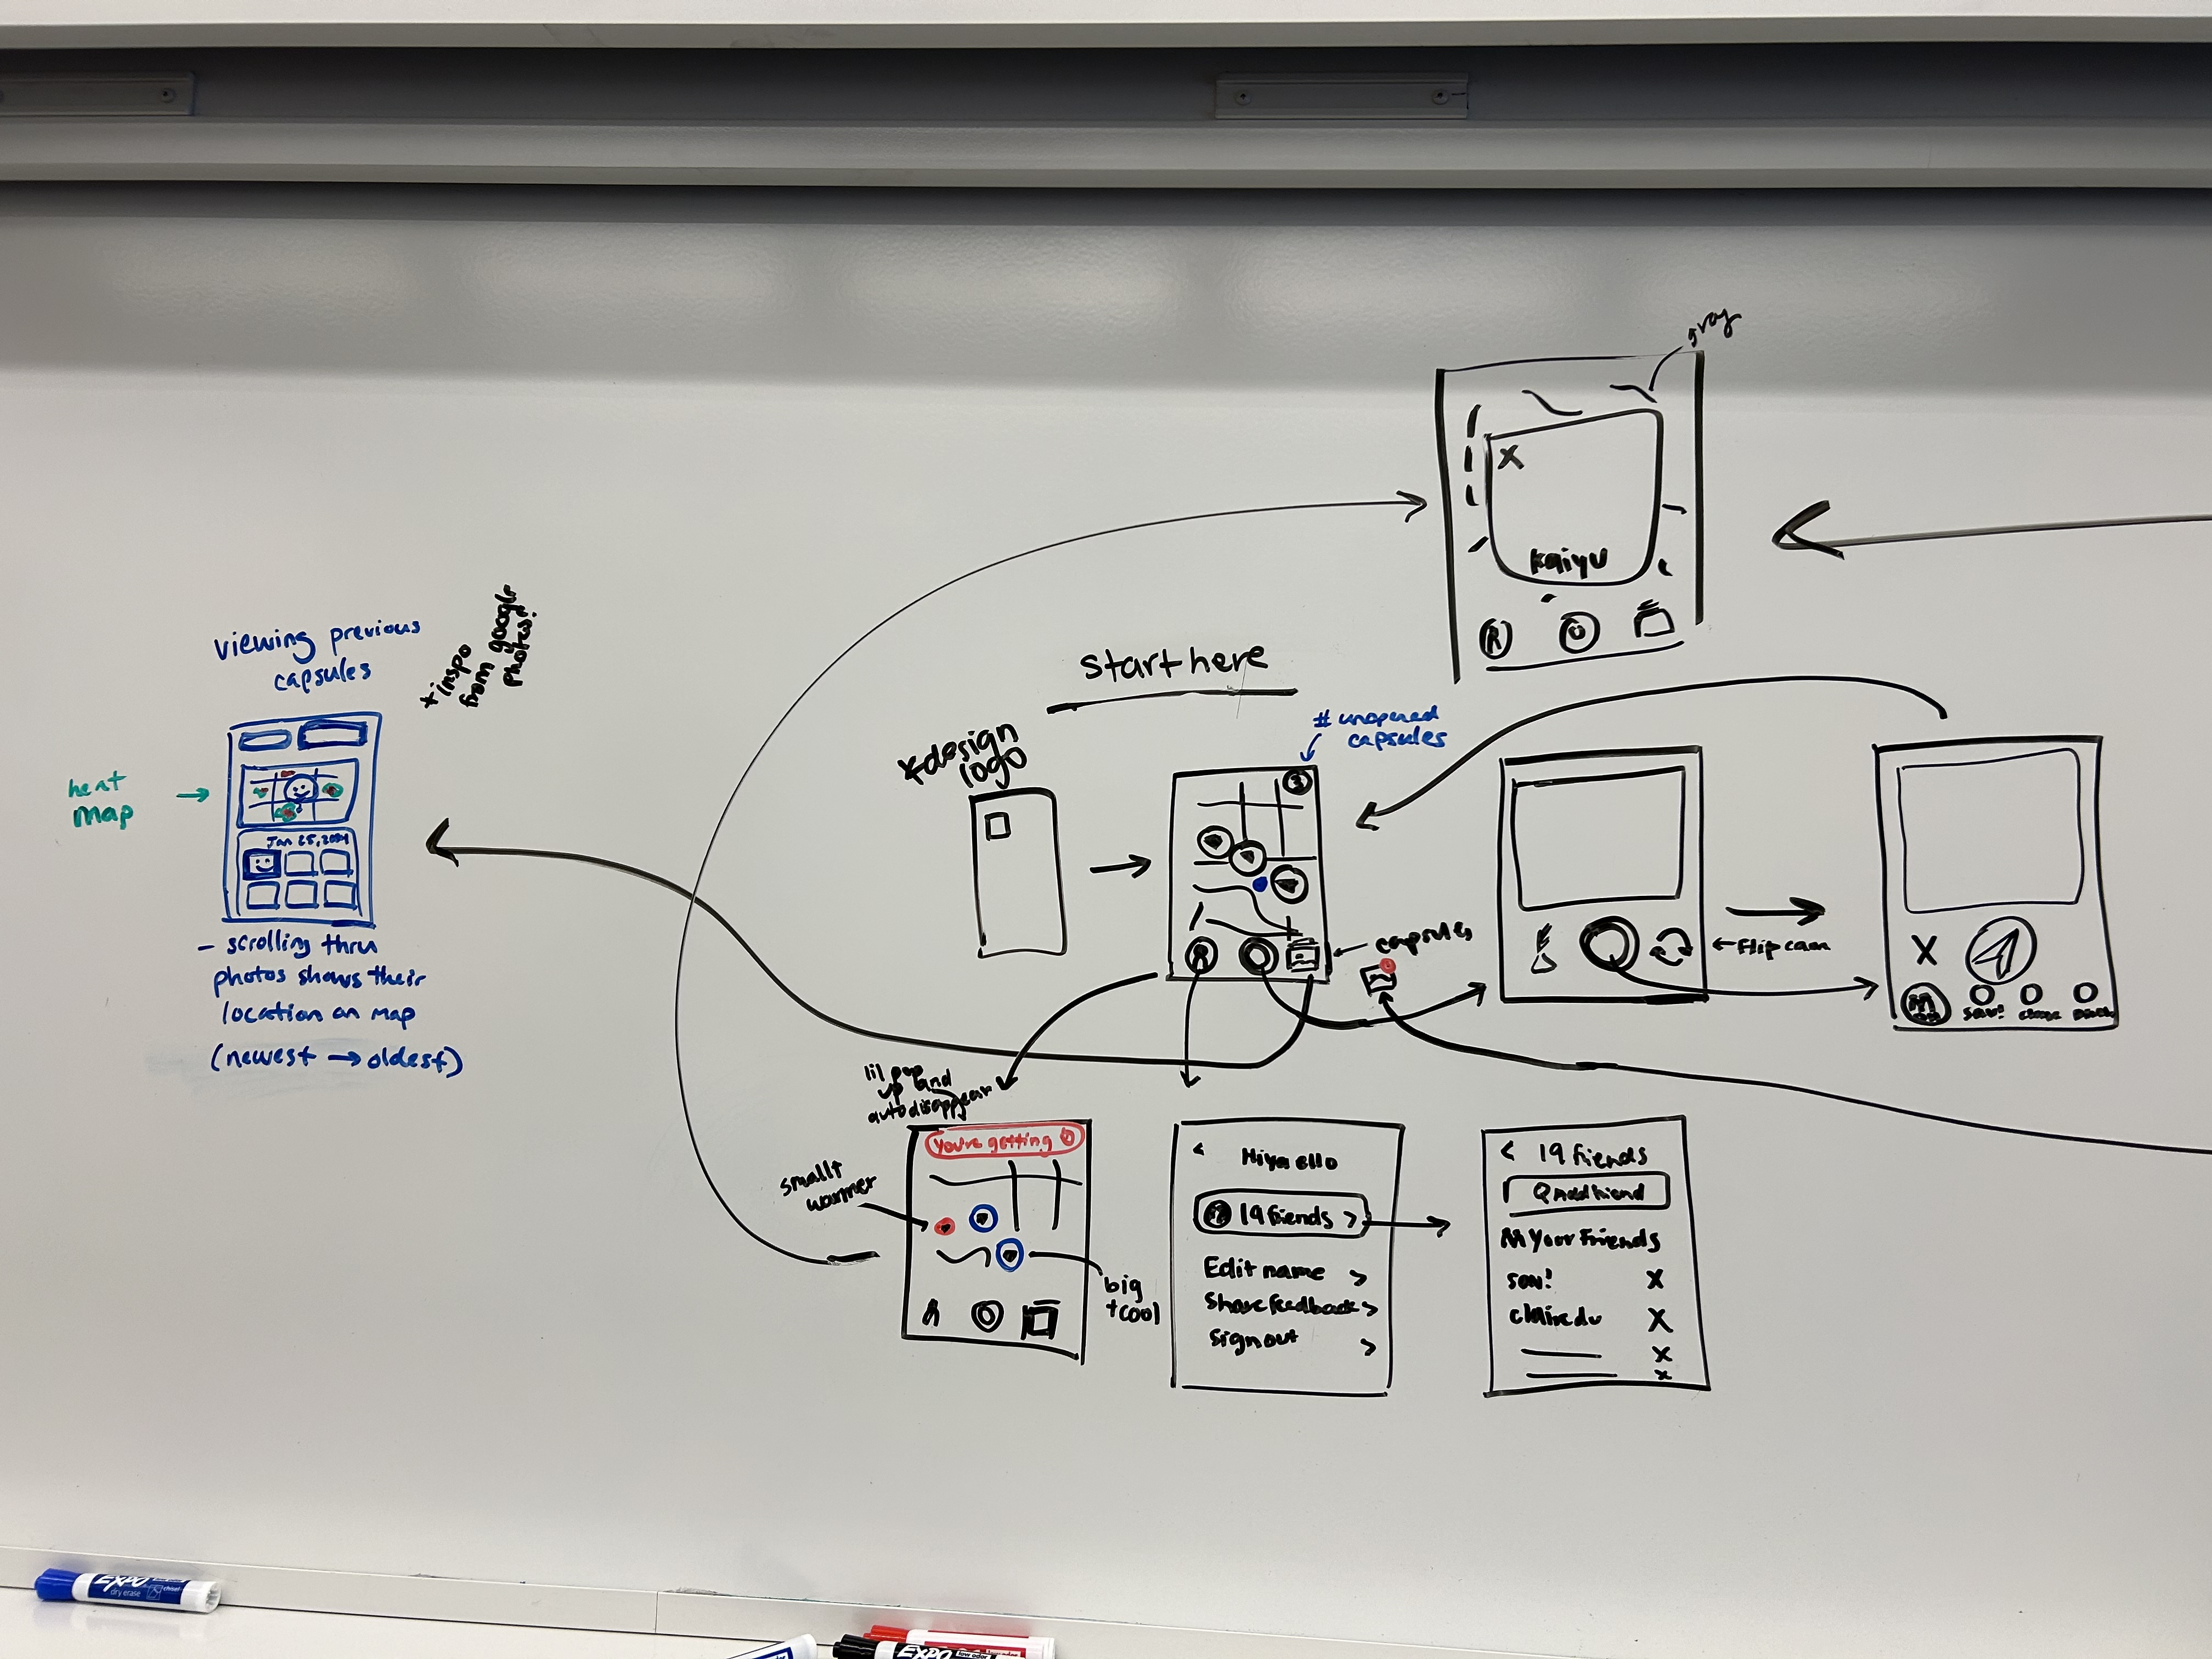 gray
X
Kaiyu
start here
viewing previous
capsules
* inspo
from google
photos!
heat
map
Jan 25, 2024
- scrolling thru
photos shows their
location on map
(newest → oldest)
*design
logo
# unopened
capsules
3
capsules
← flip cam
X
M
lil pop
up and
autodisappear
You're getting
small +
warmer
big
+ cool
< Miya ello
19 friends >
Edit name >
Share feedback >
Sign out >
< 19 friends
Add friend
Your Friends
X
clairedu X
X
X
EXPO
dry erase
EXPO
low odor